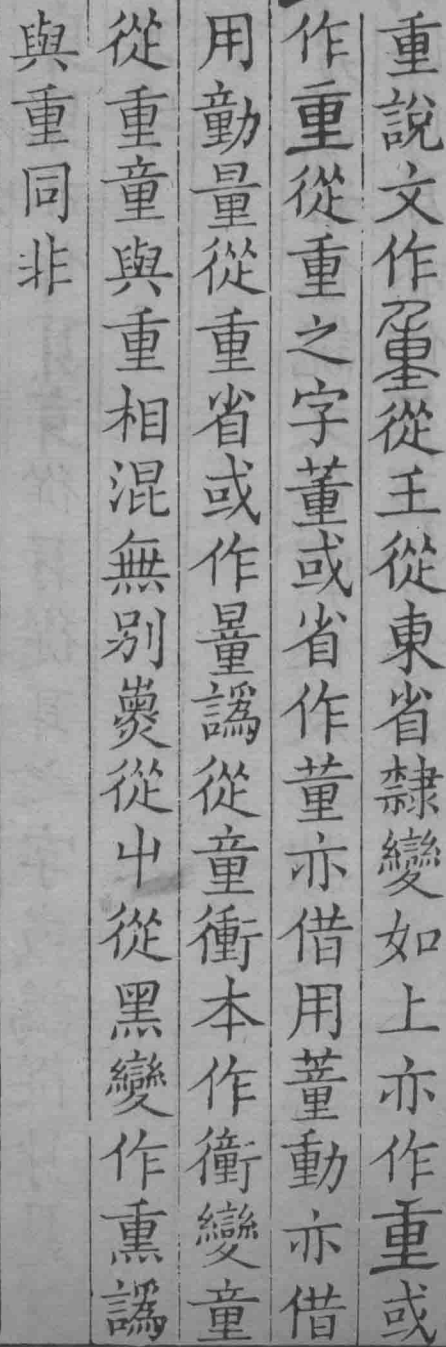 重說文作𡍴從王從東省隸變如上亦作重或
作重從重之字董或省作董亦借用蕫動亦借
用勭量從重省或作量譌從童衝本作衝變童
從重童與重相混無別㷱從屮從黑變作熏譌
與重同非